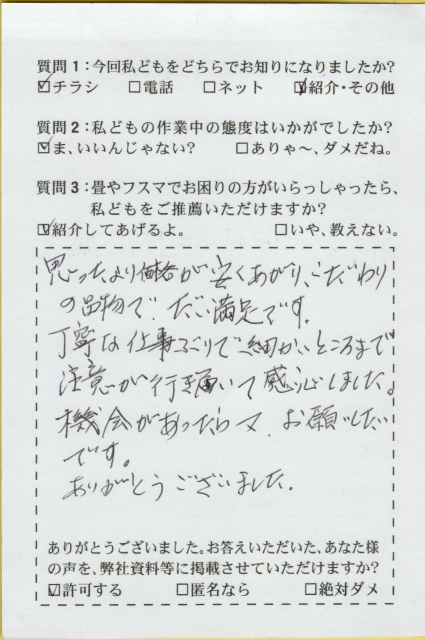 質問1:今回私どもをどちらでお知りになりましたか?
☑チラシ □電話 □ネット ☑紹介・その他
質問2:私どもの作業中の態度はいかがでしたか?
☑ま、いいんじゃない? □ありゃ〜、ダメだね。
質問3:畳やフスマでお困りの方がいらっしゃったら、
私どもをご推薦いただけますか?
☑紹介してあげるよ。 □いや、教えない。
思ったより価格が安くあがり、こだわり
の品物で だい満足です。
丁寧な仕事つぶりで 細かいところまで
注意が行き届いて感心しました。
機会があったら又、お願いしたい
です。
ありがとうございました。
ありがとうございました。お答えいただいた、あなた様
の声を、弊社資料等に掲載させていただけますか?
☑許可する □匿名なら □絶対ダメ